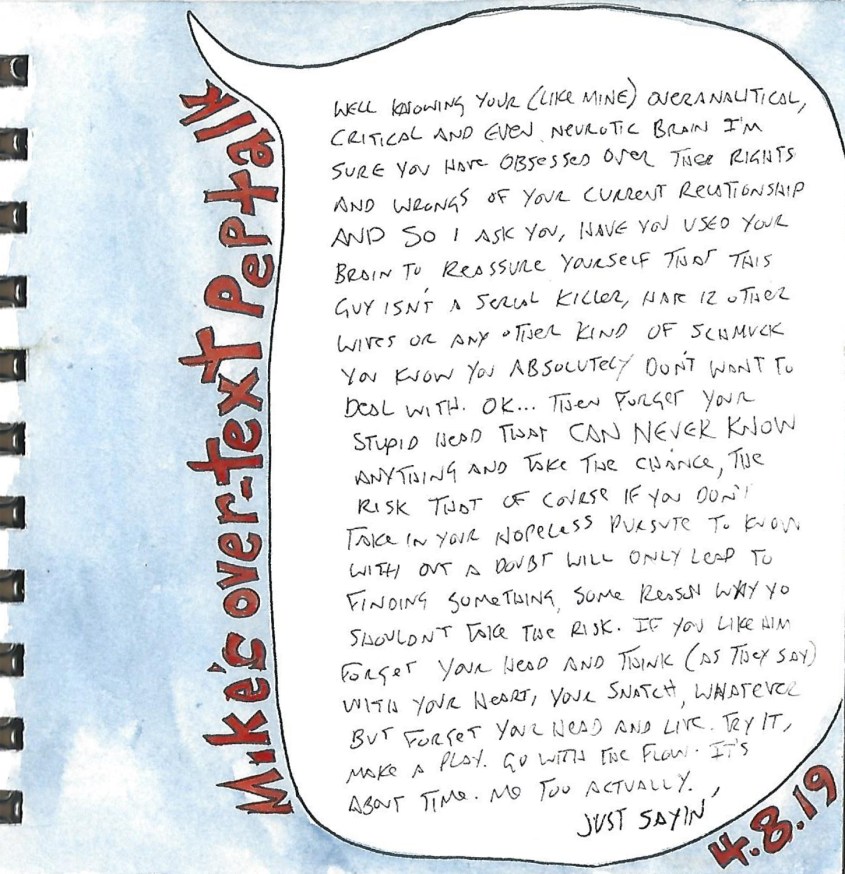 Mike's over-text Peptalk
WELL KNOWING YOUR (LIKE MINE) OVERANALITICAL,
CRITICAL AND EVEN NEUROTIC BRAIN I'M
SURE YOU HAVE OBSESSED OVER THEE RIGHTS
AND WRONGS OF YOUR CURRENT RELATIONSHIP
AND SO I ASK YOU, HAVE YOU USED YOUR
BRAIN TO REASSURE YOURSELF THAT THIS
GUY ISN'T A SERIAL KILLER, HAR 12 OTHER
WIVES OR ANY OTHER KIND OF SCHMUCK
YOU KNOW YOU ABSOLUTELY DON'T WANT TO
DEAL WITH. OK... THEN FORGET YOUR
STUPID HEAD THAT CAN NEVER KNOW
ANYTHING AND TAKE THE CHANCE, THE
RISK THAT OF COURSE IF YOU DON'T
TAKE IN YOUR HOPELESS PURSUTE TO KNOW
WITH OUT A DOUBT WILL ONLY LEAD TO
FINDING SOMETHING, SOME REASON WHY YO
SHOULDN'T TAKE THE RISK. IF YOU LIKE HIM
FORGET YOUR HEAD AND THINK (AS THEY SAY)
WITH YOUR HEART, YOUR SNATCH, WHATEVER
BUT FORGET YOUR HEAD AND LIVE. TRY IT,
MAKE A PLAY. GO WITH THE FLOW. IT'S
ABOUT TIME. ME TOO ACTUALLY.
JUST SAYIN'
4.8.19